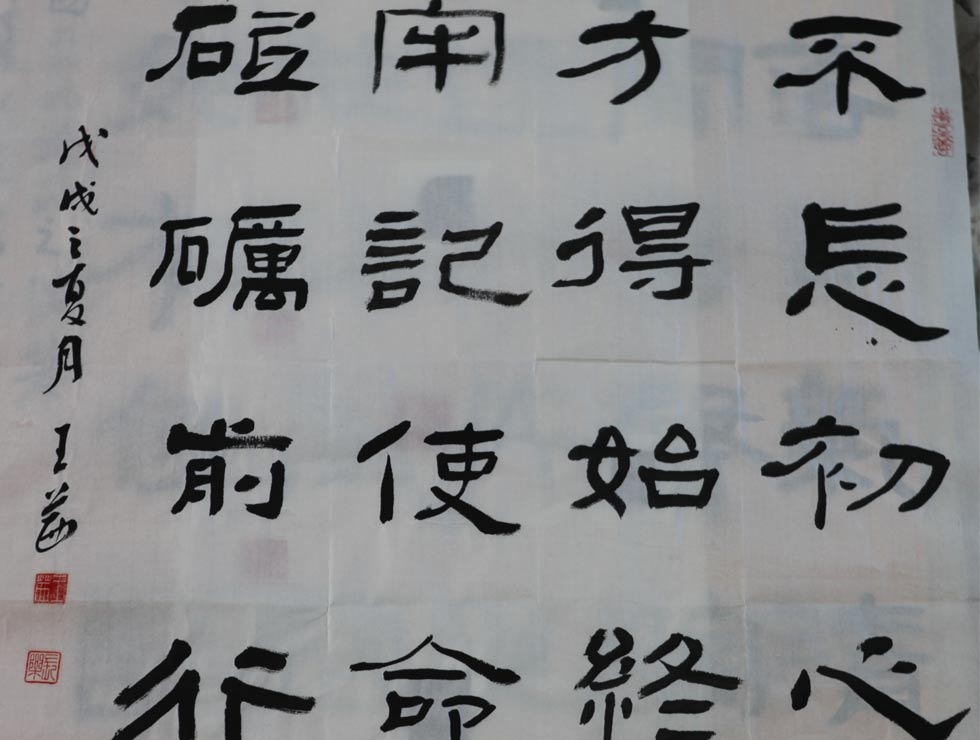 不忘初心
方得始終
牢記使命
砥礪前行
戊戌之夏月 王茜